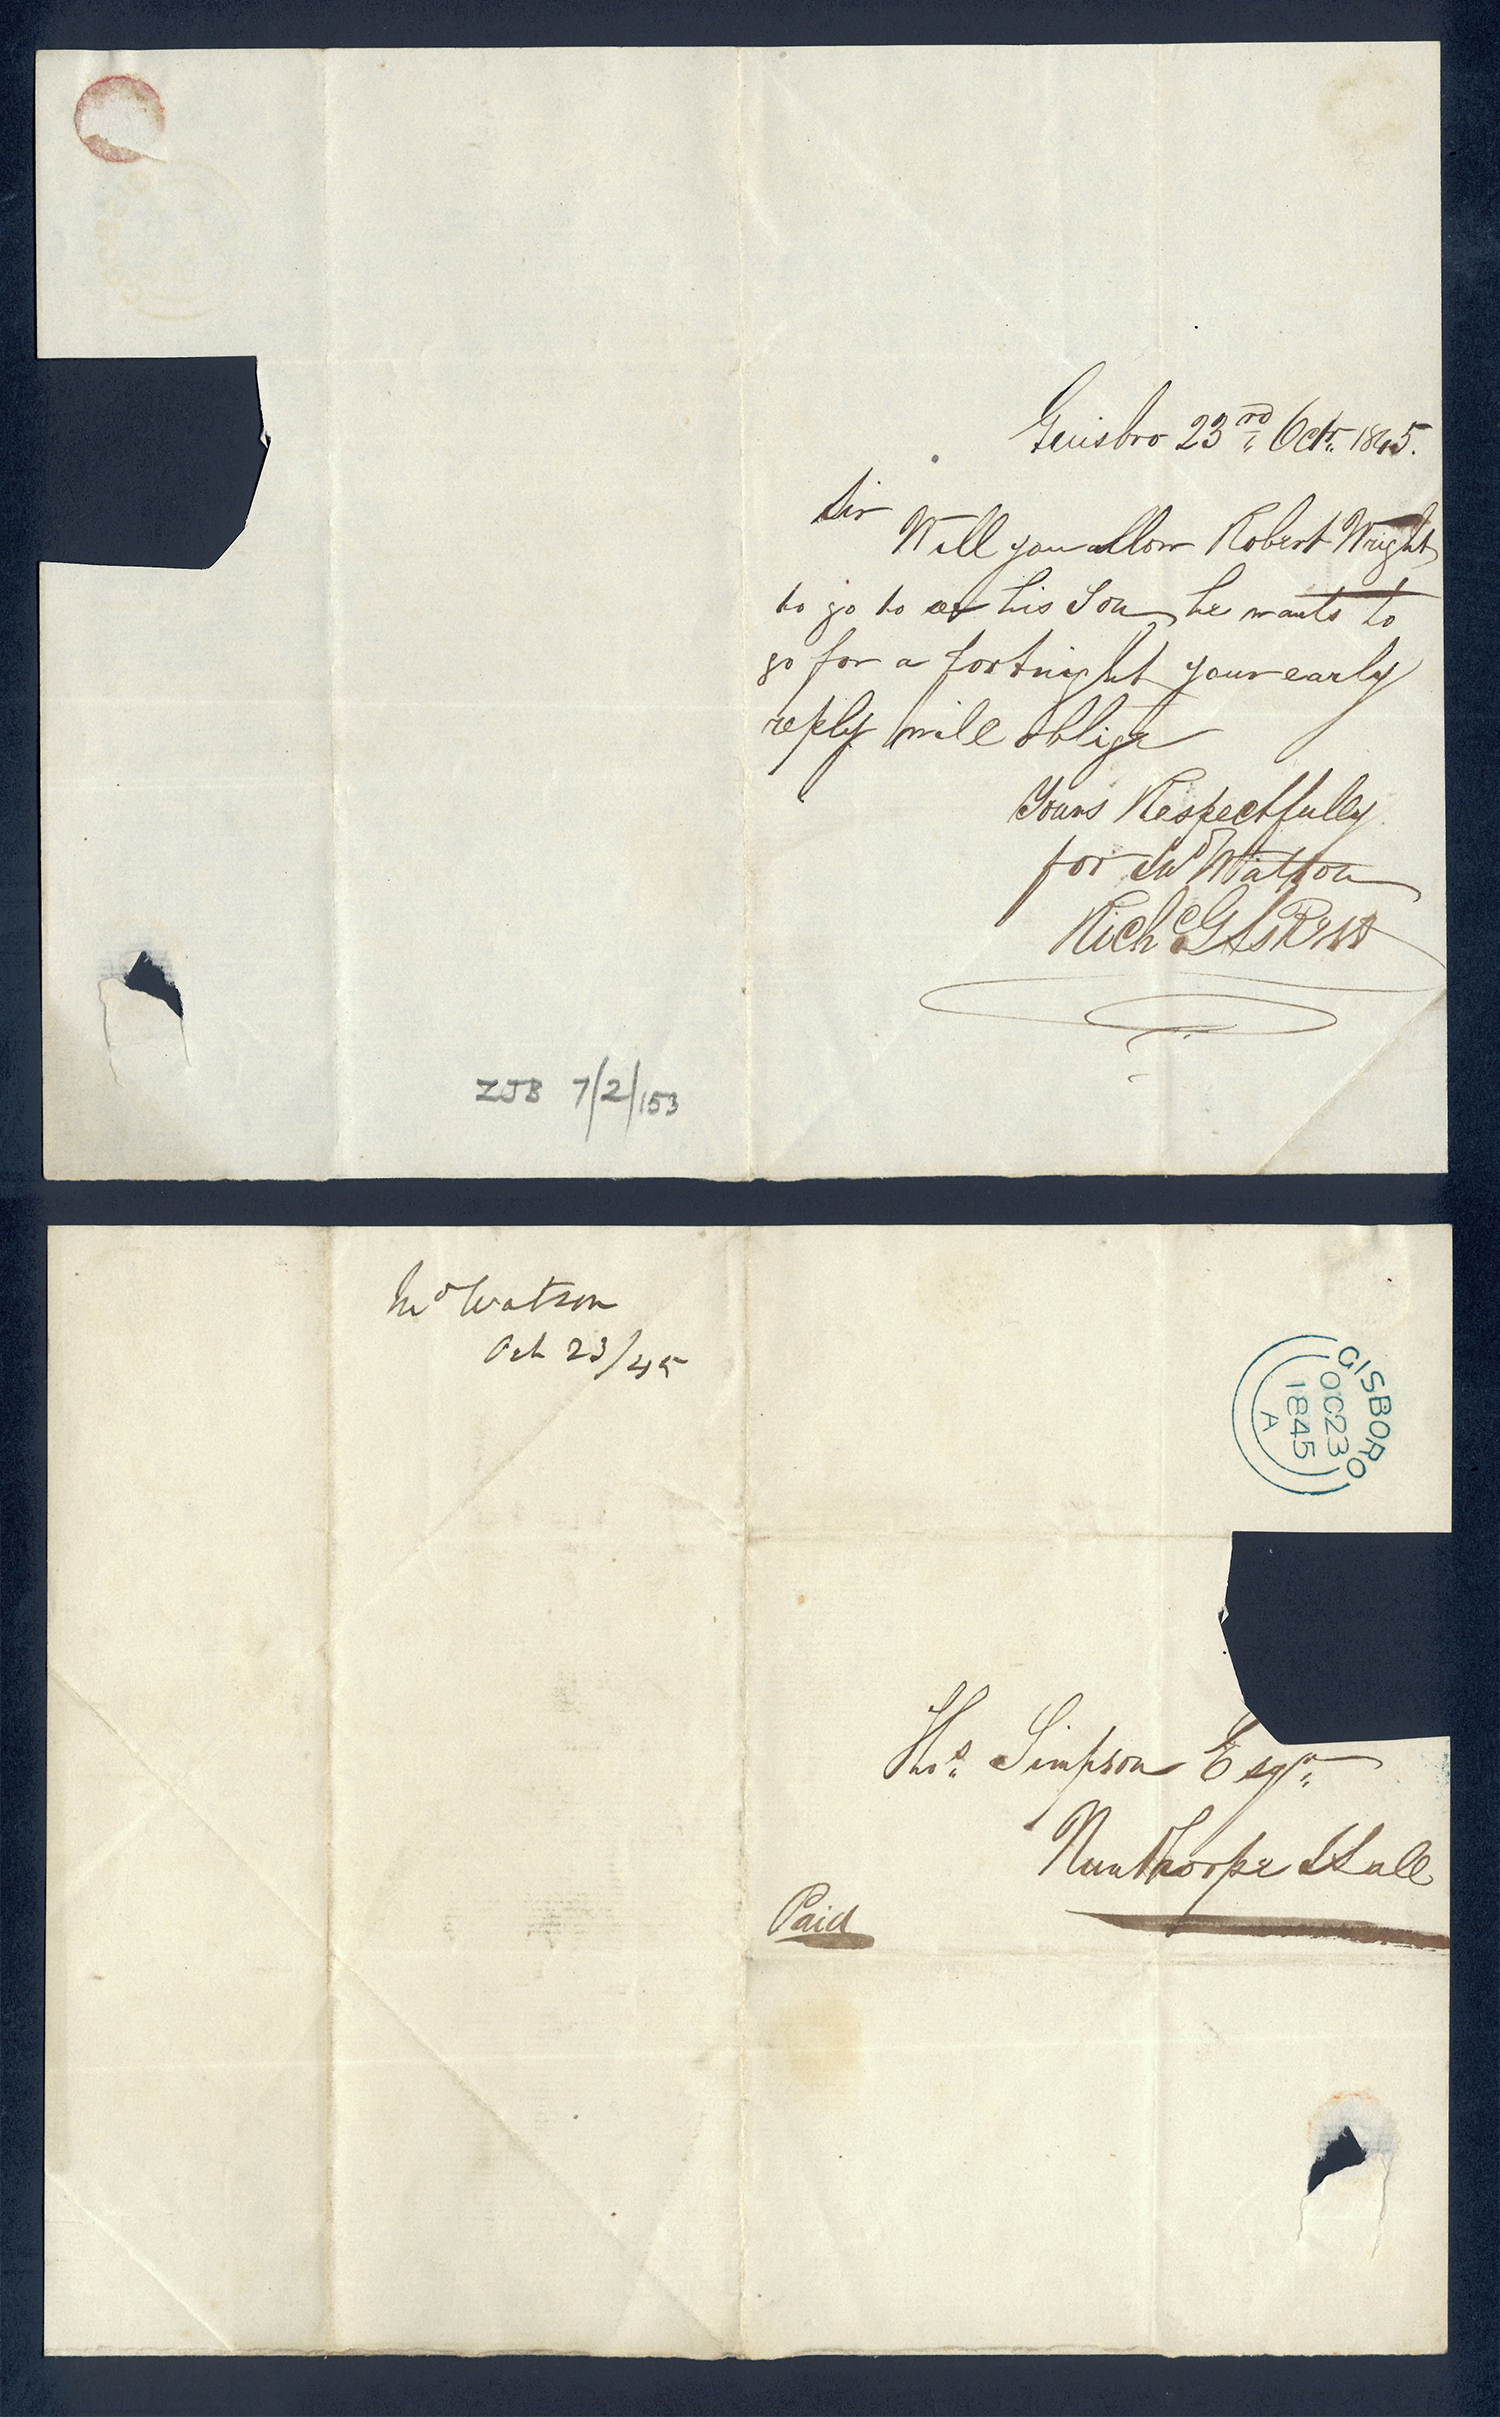 Guisbro 23rd Octr. 1845.
Sir
Will you allow Robert Wright
to go to see his Son he wants to
go for a fortnight your early
reply will oblige
Yours Respectfully
for Wm Watson
Richd
ZJB 7/2/153
Wm Watson
Oct 23/45
GISBORO
OC23
1845
A
Thos. Simpson Esqr.
Nunthorpe Hall
Paid